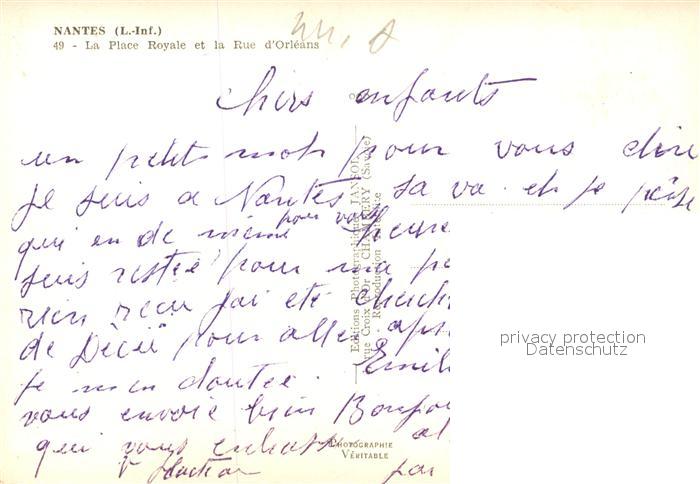 NANTES (L.-Inf.)
49 - La Place Royale et la Rue d'Orléans
chers enfants
un petits mots pour vous dire
Je suis a Nantes. sa va. et je pense
qui en de meme pour vous
suis resté pour ma
rien recu j'ai été cherch
de Décié pour aller
Je m'en doutée. Emil
vous envoie bien Bonjou
qui vous
par
Editions Photographiques JANSOL
rue Croix d'Or - CHAMBERY (Savoie)
Reproduction interdite
PHOTOGRAPHIE
VÉRITABLE
privacy protection
Datenschutz